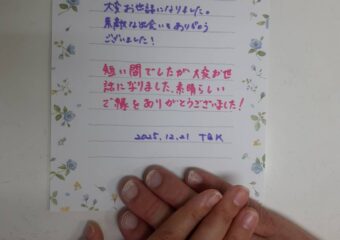 大変お世話になりました。
素敵な出会いをありがとう
ございました！
短い間でしたが大変お世
話になりました。素晴らしい
ご縁をありがとうございました！
2025.12.21 T&K